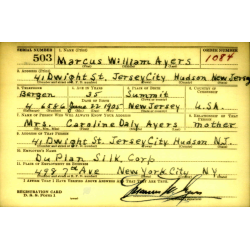 SERIAL NUMBER 1. NAME (Print) ORDER NUMBER
503 Marcus William Ayers 1084
2. ADDRESS (Print)
41 Dwight St. Jersey City Hudson New Jersey
3. TELEPHONE 4. AGE IN YEARS 5. PLACE OF BIRTH 6. COUNTRY OF CITIZENSHIP
Bergen 35 Summit
4 6586 June 22 1905 New Jersey U.S.A.
7. NAME OF PERSON WHO WILL ALWAYS KNOW YOUR ADDRESS 8. RELATIONSHIP OF THAT PERSON
Mrs. Caroline Daly Ayers Mother
9. ADDRESS OF THAT PERSON
41 Dwight St. Jersey City Hudson N.J.
10. EMPLOYER'S NAME
Du Plan Silk Corp
11. PLACE OF EMPLOYMENT OR BUSINESS
7th Ave New York City NY
I AFFIRM THAT I HAVE VERIFIED ABOVE ANSWERS AND THAT THEY ARE TRUE.
REGISTRATION CARD
D. S. S. Form 1